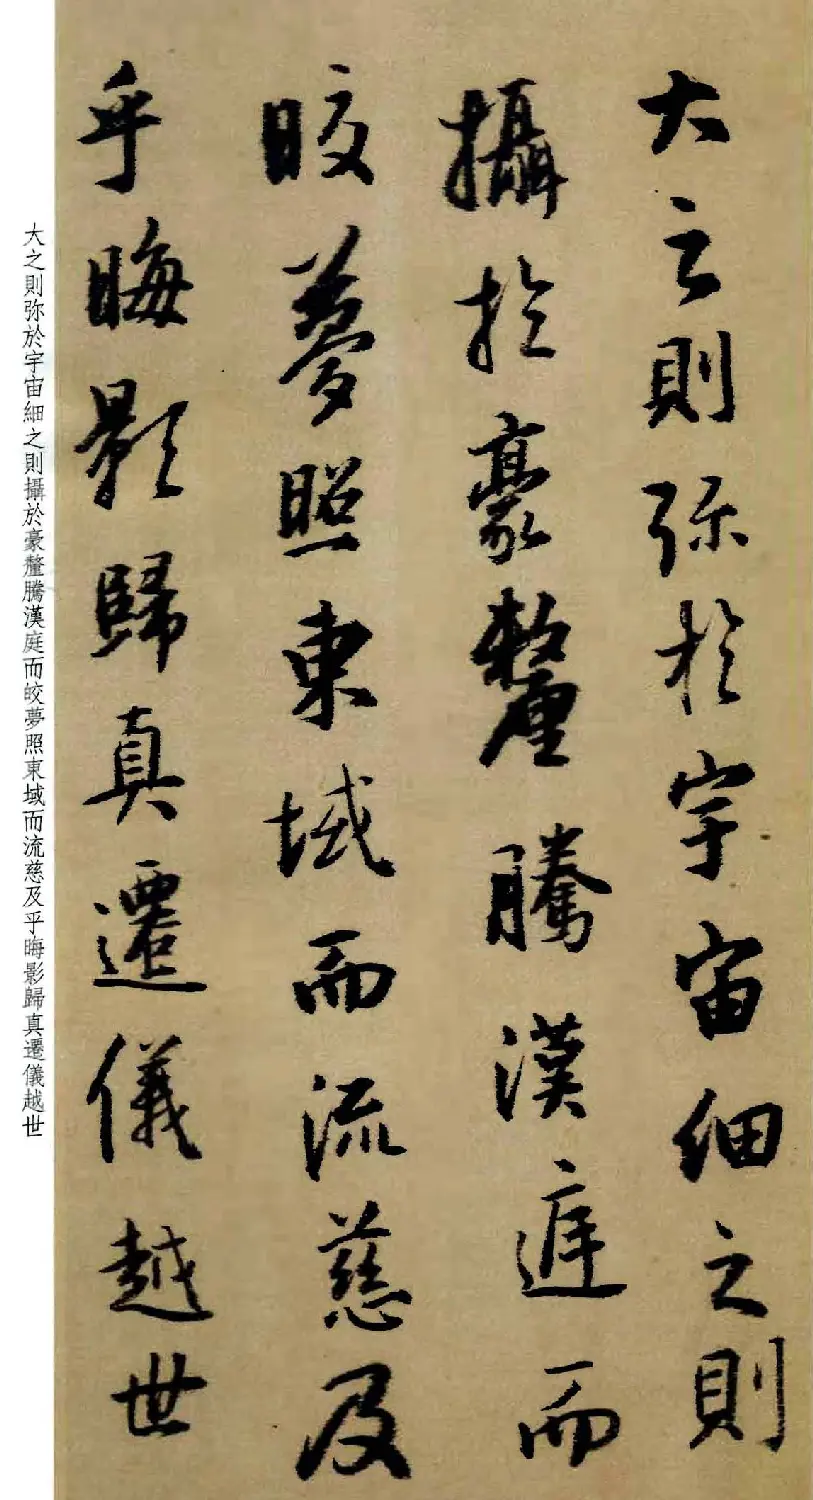 大之則弥於宇宙細之則
攝於豪釐騰漢庭而
晈夢照東域而流慈及
乎晦影歸真遷儀越世
大之則弥於宇宙細之則攝於豪釐騰漢庭而皎夢照東域而流慈及乎晦影歸真遷儀越世